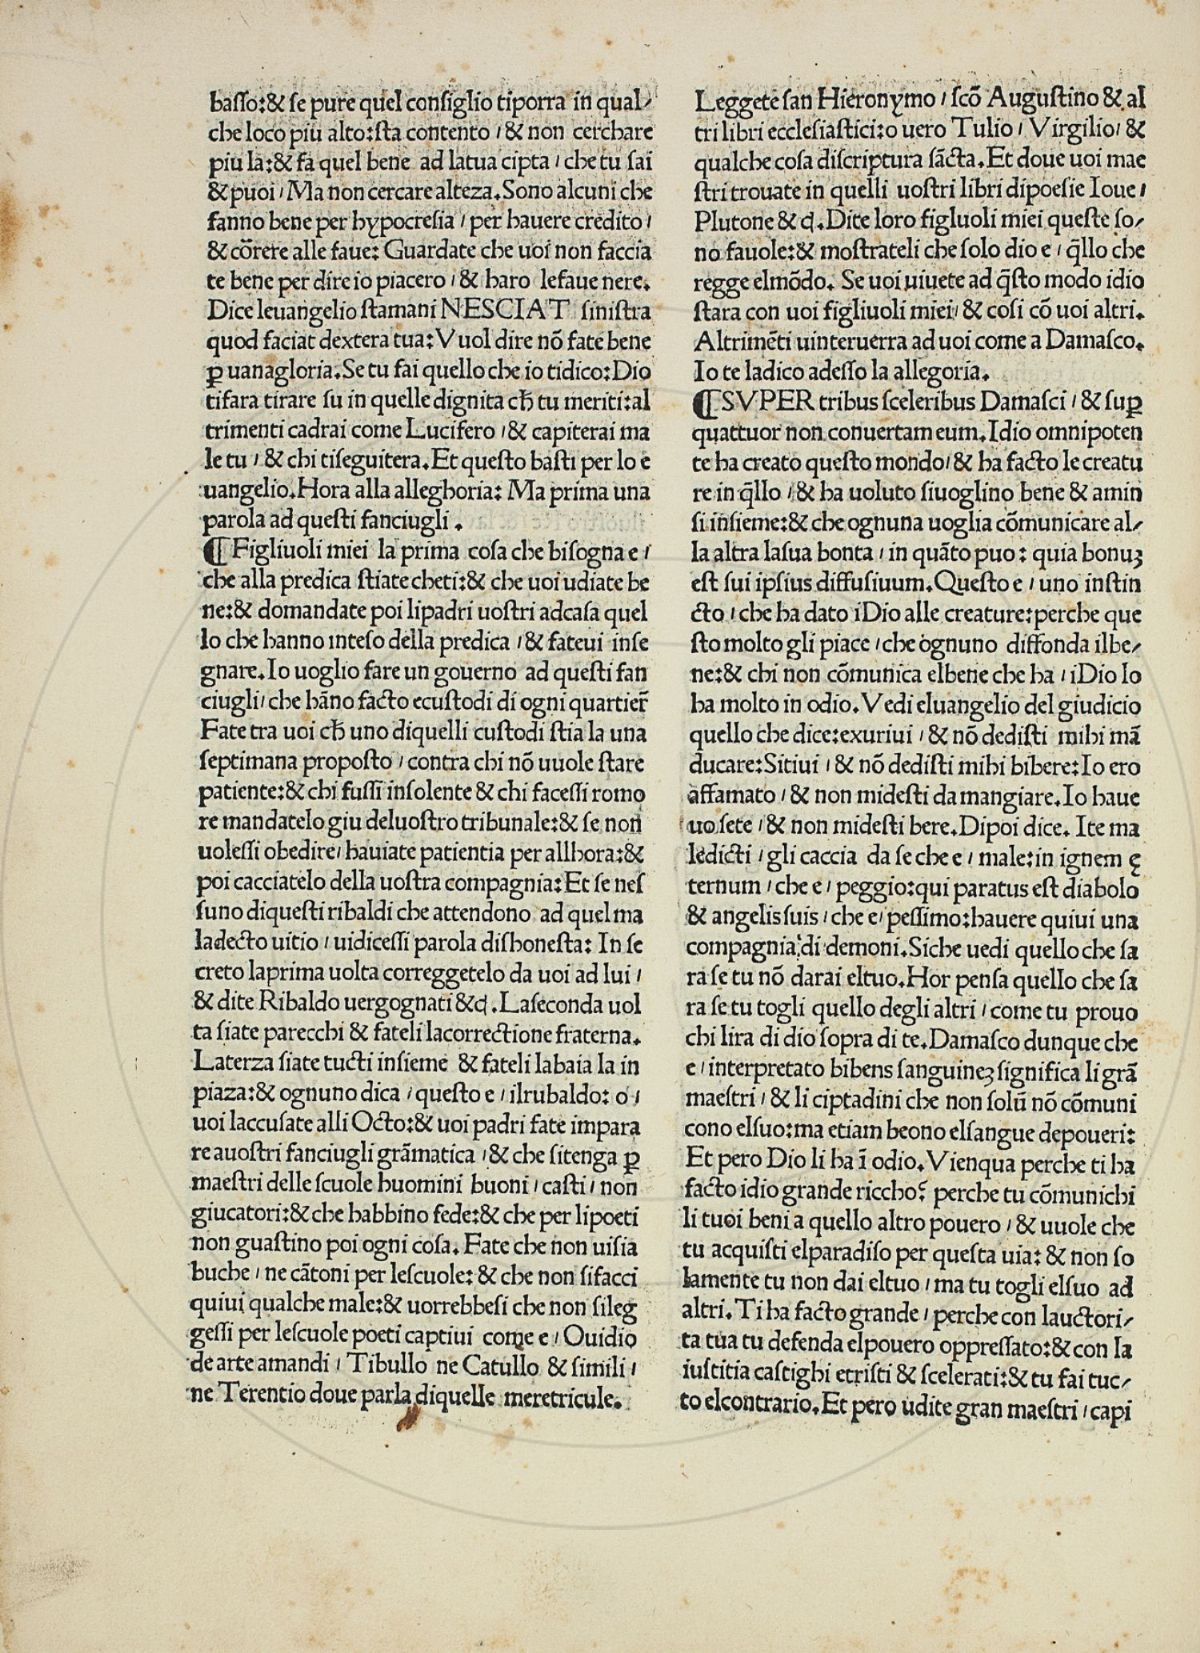 basso:& se pure quel consiglio tiporra in qual-
che loco piu alto:sta contento / & non cerchare
piu la:& fa quel bene ad latua cipta / che tu sai
& puoi / Ma non cercare alteza. Sono alcuni che
fanno bene per hypocresia / per hauere credito /
& cõrere alle faue: Guardate che uoi non faccia
te bene per dire io piacero / & haro lefaue nere.
Dice leuangelio stamani NESCIAT sinistra
quod faciat dextera tua: Vuol dire nõ fate bene
ꝑ uanagloria. Se tu fai quello che io tidico: Dio
tifara tirare su in quelle dignita cħ tu meriti:al
trimenti cadrai come Lucifero / & capiterai ma
le tu / & chi tiseguitera. Et questo basti per lo e
uangelio. Hora alla alleghoria: Ma prima una
parola ad questi fanciugli .
¶ Figliuoli miei la prima cosa che bisogna e /
che alla predica stiate cheti:& che uoi udiate be
ne:& domandate poi lipadri uostri adcasa quel
lo che hanno inteso della predica / & fateui inse
gnare. Io uoglio fare un gouerno ad questi fan
ciugli / che hãno facto ecustodi di ogni quartier̃
Fate tra uoi cħ uno diquelli custodi stia la una
septimana proposto / contra chi nõ uuole stare
patiente:& chi fussi insolente & chi facessi romo
re mandatelo giu deluostro tribunale:& se non
uolessi obedire / hauiate patientia per allhora:&
poi cacciatelo della uostra compagnia: Et se nes
suno diquesti ribaldi che attendono ad quel ma
ladecto uitio / uidicessi parola dishonesta: In se
creto laprima uolta correggetelo da uoi ad lui /
& dite Ribaldo uergognati &cͥ. Laseconda uol
ta siate parecchi & fateli lacorrectione fraterna.
Laterza siate tucti insieme & fateli labaia la in
piaza:& ognuno dica / questo e / ilrubaldo: o /
uoi laccusate alli Octo:& uoi padri fate impara
re auostri fanciugli grãmatica / & che sitenga ꝑ
maestri delle scuole huomini buoni / casti / non
giucatori:& che habbino fede:& che per lipoeti
non guastino poi ogni cosa. Fate che non uisia
buche / ne cãtoni per lescuole: & che non sifacci
quiui qualche male:& uorrebbesi che non sileg
gessi per lescuole poeti captiui come e / Ouidio
de arte amandi / Tibullo ne Catullo & simili /
ne Terentio doue parla diquelle meretricule.
Leggete san Hieronymo / scõ Augustino & al
tri libri ecclesiastici:o uero Tulio / Virgilio / &
qualche cosa discriptura sãcta. Et doue uoi mae
stri trouate in quelli uostri libri dipoesie Ioue /
Plutone & cͥ. Dite loro figluoli miei queste so-
no fauole:& mostrateli che solo dio e / q̃llo che
regge elmõdo. Se uoi uiuete ad q̃sto modo idio
stara con uoi figliuoli miei / & cosi cõ uoi altri.
Altrimẽti uinteruerra ad uoi come a Damasco.
Io te ladico adesso la allegoria.
¶ SVPER tribus sceleribus Damasci / & suꝑ
quattuor non conuertam eum. Idio omnipoten
te ha creato questo mondo / & ha facto le creatu
re in q̃llo / & ha uoluto siuoglino bene & amin
si insieme:& che ognuna uoglia cõmunicare al-
la altra lasua bonta / in quãto puo: quia bonuꝫ
est sui ipsius diffusiuum. Questo e / uno instin
cto / che ha dato iDio alle creature: perche que
sto molto gli piace / che ognuno diffonda ilbe-
ne:& chi non cõmunica elbene che ha / iDio lo
ha molto in odio. Vedi eluangelio del giudicio
quello che dice: exuriui / & nõ dedisti mihi mã
ducare: Sitiui / & nõ dedisti mihi bibere: Io ero
affamato / & non midesti da mangiare. Io haue
uo sete / & non midesti bere. Dipoi dice. Ite ma
ledicti / gli caccia da se che e / male: in ignem ę
ternum / che e / peggio: qui paratus est diabolo
& angelis suis / che e / pessimo: hauere quiui una
compagnia di demoni. Siche uedi quello che sa
ra se tu nõ darai eltuo. Hor pensa quello che sa
ra se tu togli quello degli altri / come tu prouo
chi lira di dio sopra di te. Damasco dunque che
e / interpretato bibens sanguineꝫ significa li grã
maestri / & li ciptadini che non solũ nõ cõmuni
cono elsuo: ma etiam beono elsangue depoueri:
Et pero Dio li ha ĩ odio. Vienqua perche ti ha
facto idio grande riccho? perche tu cõmunichi
li tuoi beni a quello altro pouero / & uuole che
tu acquisti elparadiso per questa uia: & non so
lamente tu non dai eltuo / ma tu togli elsuo ad
altri. Ti ha facto grande / perche con lauctori-
ta tua tu defenda elpouero oppressato:& con la
iustitia castighi etristi & scelerati:& tu fai tuc-
to elcontrario. Et pero udite gran maestri / capi